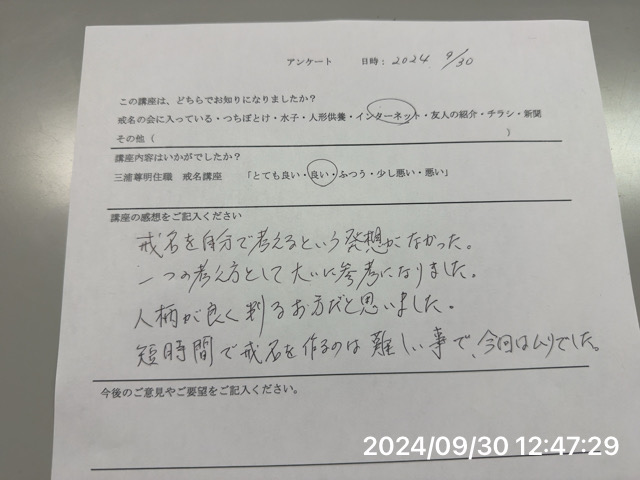 アンケート 日時：2024. 9/30
この講座は、どちらでお知りになりましたか？
戒名の会に入っている・つちぼとけ・水子・人形供養・インターネット・友人の紹介・チラシ・新聞
その他（ ）
講座内容はいかがでしたか？
三浦尊明住職 戒名講座 「とても良い・良い・ふつう・少し悪い・悪い」
講座の感想をご記入ください
戒名を自分で考えるという発想がなかった。
一つの考え方として大いに参考になりました。
人柄が良く判るお方だと思いました。
短時間で戒名を作るのは難しい事で、今回はムリでした。
今後のご意見やご要望をご記入ください。
2024/09/30 12:47:29